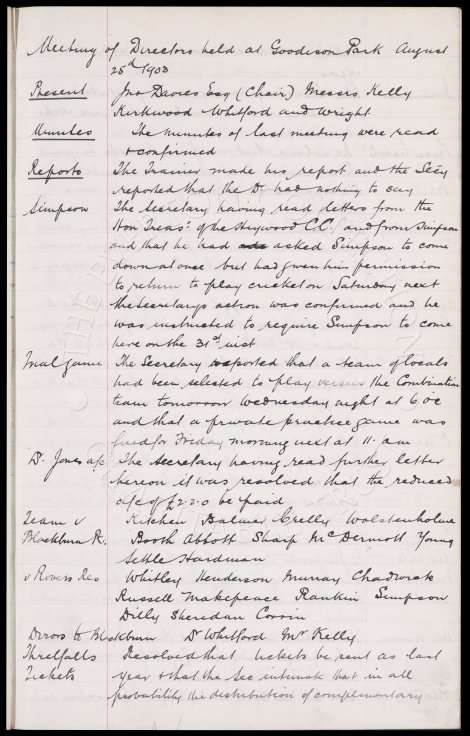 Meeting of Directors held at Goodison Park August
25th 1903
Present Mr Davies Esq (Chair) Messrs Kelly
Kirkwood Whitford and Wright
Minutes The Minutes of last meeting were read
& confirmed
Reports The Trainer made his report and the Secy
reported that the Dr had nothing to say
Simpson The Secretary having read letters from the
Hon Treasr of the Heywood C.C. and from Simpson
and that he had asked Simpson to come
down at once but had given him permission
to return to play cricket on Saturday next
the Secretarys action was confirmed and he
was instructed to require Simpson to come
here on the 31st inst
Trial game The Secretary reported that a team of locals
had been selected to play versus the Combination
team tomorrow Wednesday night at 6 oc
and that a private practice game was
fixed for Friday morning next at 11. am
Dr Jones a/c The Secretary having read further letter
hereon it was resolved that the reduced
a/c of £2.2.0 be paid
Team v Kitchen Balmer Crelly Wolstenholme
Blackburn R. Booth Abbott Sharp McDermott Young
Settle Hardman
v Rovers Res Whitley Henderson Murray Chadwick
Russell Makepeace Rankin Simpson
Dilly Sheridan Corrin
Dirors to Blackburn Dr Whitford Mr Kelly
Threlfalls Resolved that tickets be sent as last
Tickets year & that the Sec intimate that in all
probability the distribution of complimentary